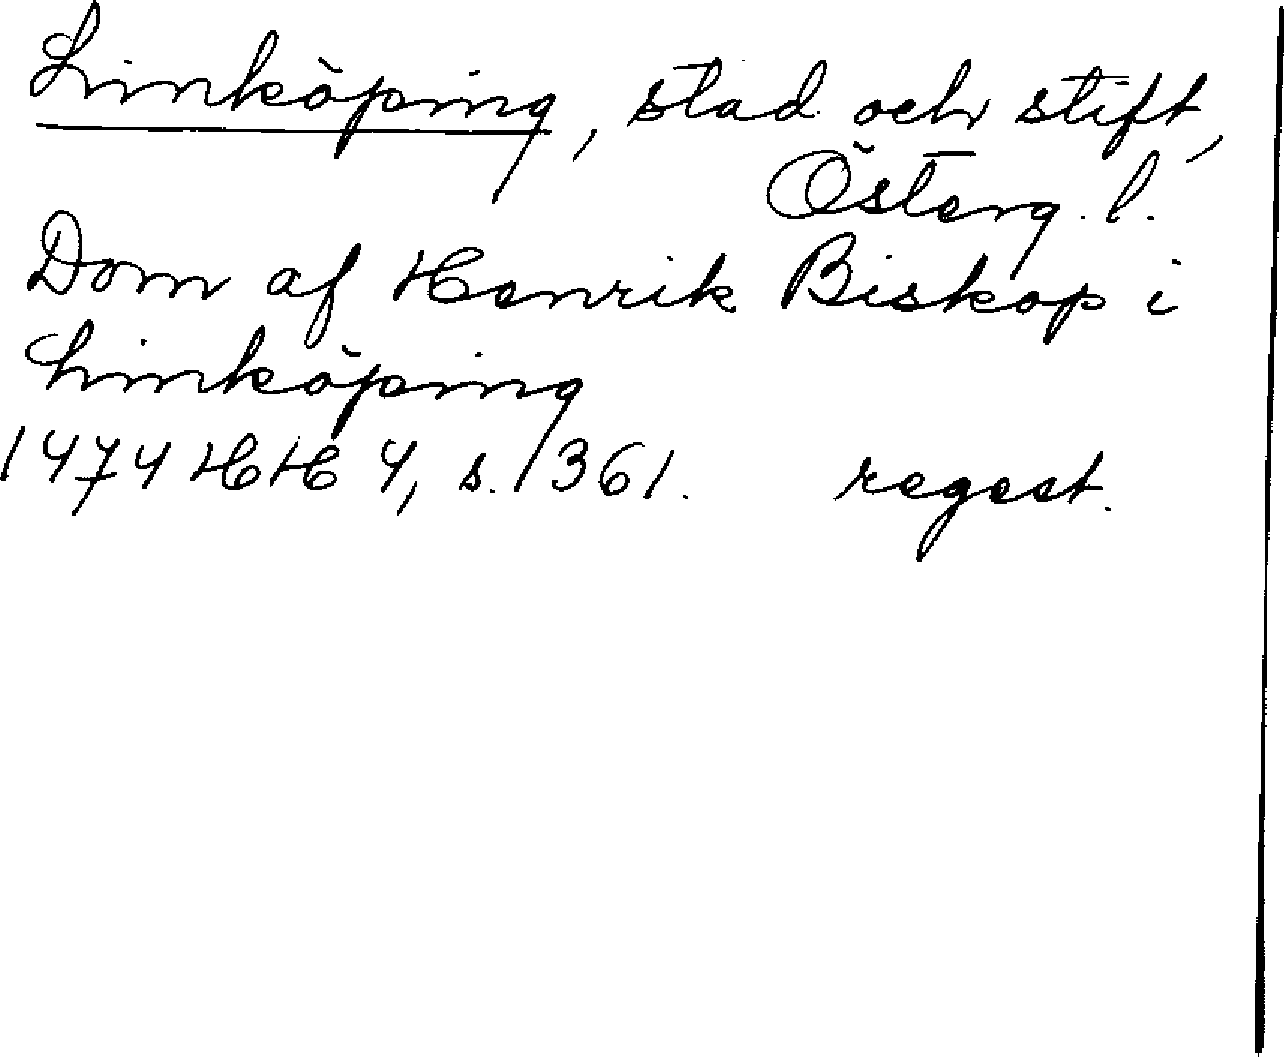 Linköping, stad och stift,
Österg. l.
Dom af Henrik Biskop i
Linköping
1474 HH 4, s. 361. regest.